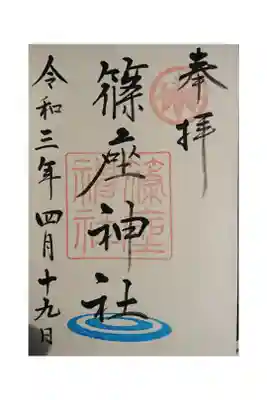 奉拝
篠座神社
令和三年四月十九日
篠座神社